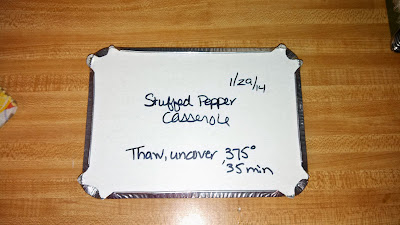 1/29/14
Stuffed Pepper
Casserole
Thaw, uncover, 375°
35 min